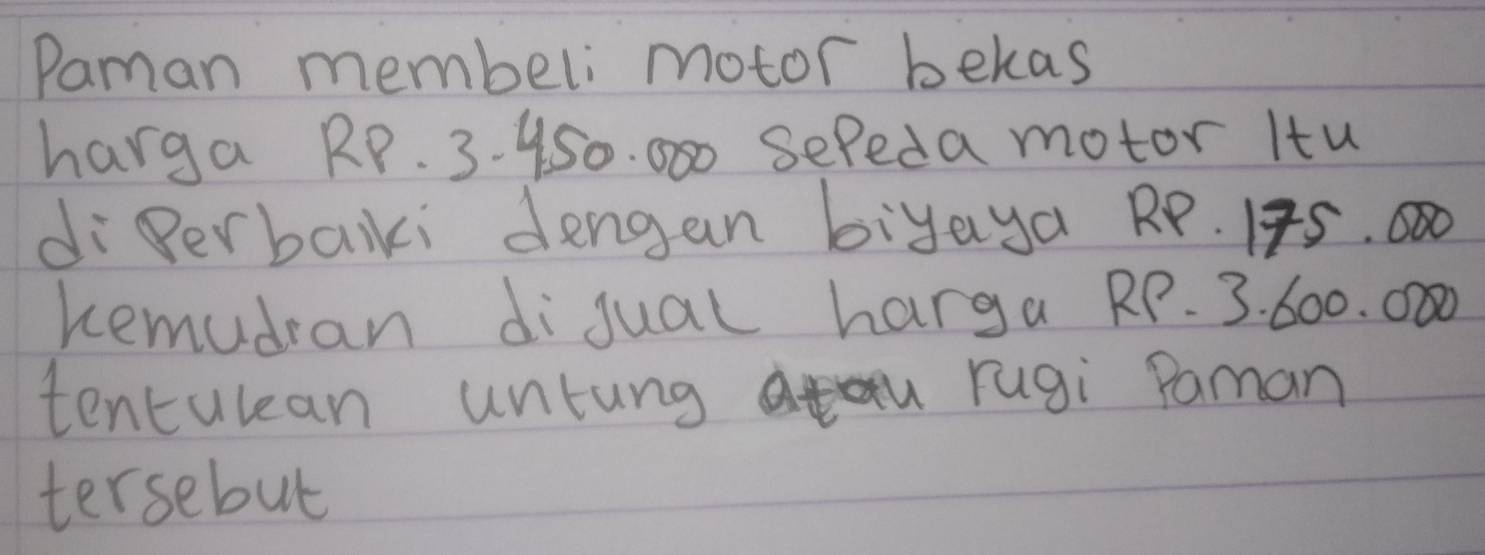 Paman membeli motor bekas
harga RP. 3.450.000 sepeda motor Itu
di Perbaiki dengan biyaya RP. 175.000
kemudian di jual harga RP. 3.600.000
tentukan untung atau rugi Paman
tersebut